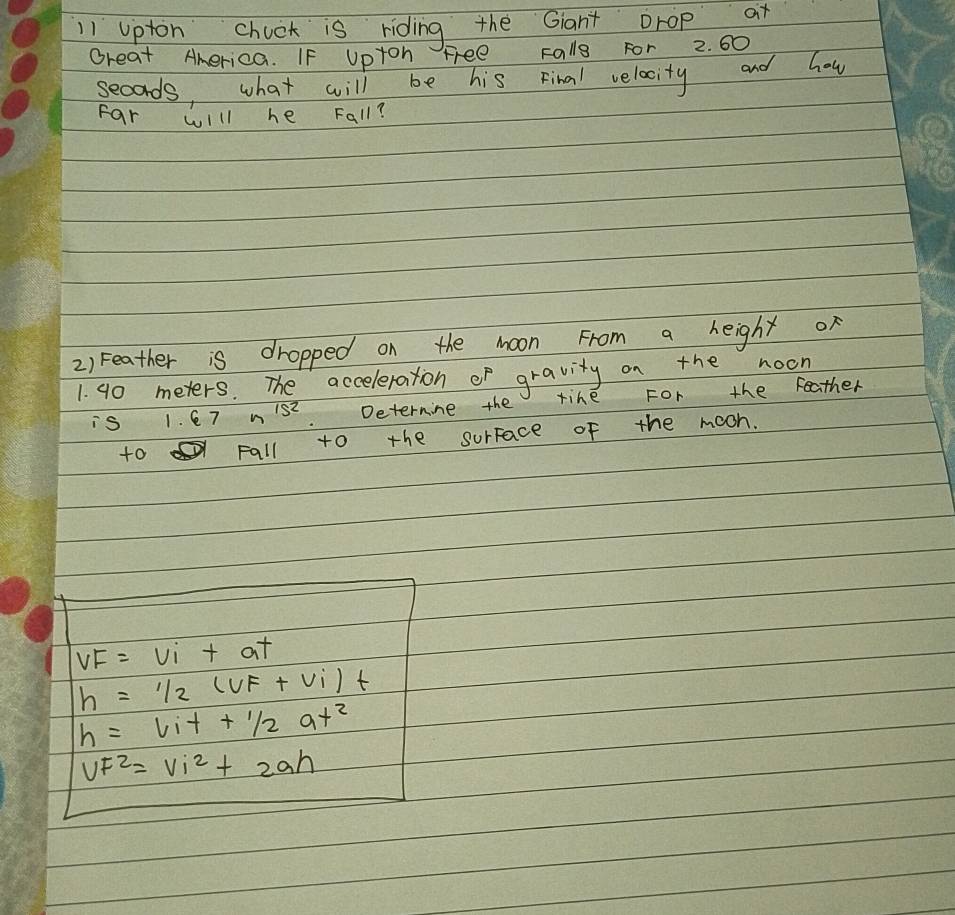 1) Upton Chuck is riding the Giant Drop at
Great America. IF Upton Free Falls For 2.60
seconds, what will be his Final velocity and how
Far will he Fall?
2) Feather is dropped on the moon From a height oF
1.40 meters. The acceleration oF gravity on the moon
is 1.67 m/s². Determine the time For the Feather
to Fall to the surFace oF the moon.
VF = Vi + at
h = 1/2 (VF + Vi) t
h = Vit + 1/2 at²
VF² = Vi² + 2ah